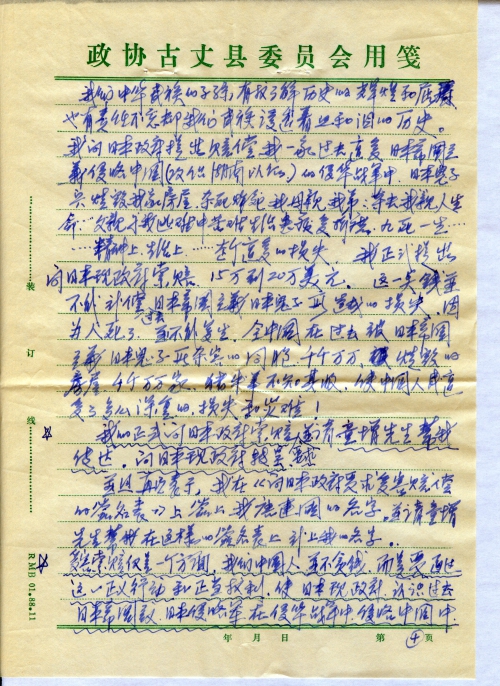 政协古丈县委员会用笺
我们中华民族的子孙,有权了解历史的辉煌和屈辱
也有责任不忘却我们民族浸透着血和泪的历史。
我向日本政府提出赔偿,我一家过去遭受日本帝国主
义侵略中国(攻似湖南以北)的侵华战争中,日本鬼子
烧毁我家房屋,杀死 我母亲 我弟,等去我亲人生
命……父亲 九死一生……
……精神上,生活上……遭受的损失 我正式提出
向日本现政府索赔 15万到20万美元。这一笔钱并
不补偿过去日本帝国主义日本鬼子所造成的损失,因
为人死了,并不能复生。全中国在过去被日本帝国
主义日本鬼子所杀害的同胞,千千万万,被烧毁的
房屋,千千万万家,猪牛羊不知其数,使中国人民遭
受了多么深重的损失和灾难!
我的正式向日本政府索赔,请童增先生帮我
传达,向日本现政府
并且再次表示,我在《向日本政府要求受害赔偿
的签名表》上签上我 的名字。请童增
先生帮我在这样的签名表上补上我的名字。
索赔仅是一个方面,我们中国人并不贪钱,而是要通过
这一正义行动和正当权利,使日本现政府认识过去
日本帝国主义,日本侵略军在侵华战争中,侵略中国中
年 月 日 第 4 页
装
订
线
RMB 01.88.11